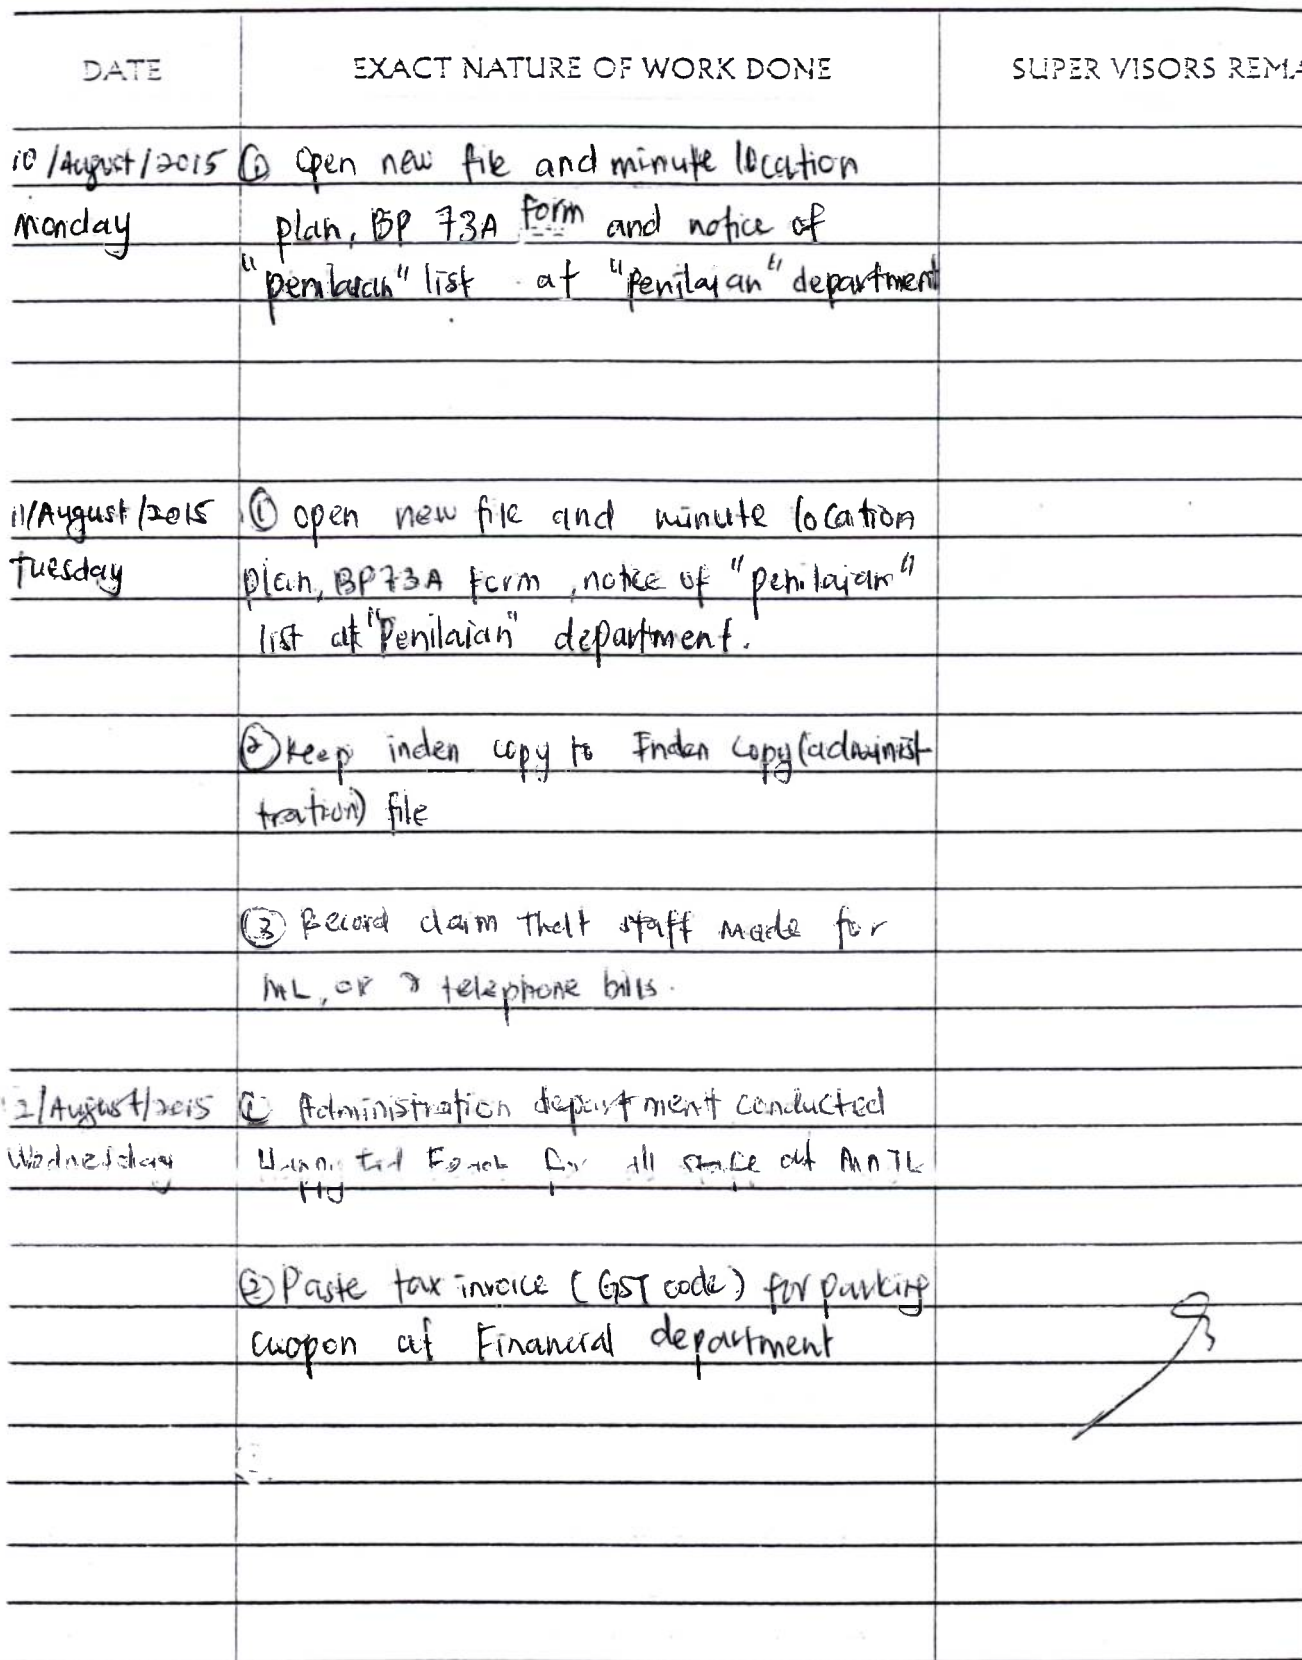 DATE EXACT NATURE OF WORK DONE SUPER VISORS REMA
10/August/2015 ① Open new file and minute location
Monday plan, BP 73A form and notice of
"penilaian" list at "Penilaian" department
11/August/2015 ① open new file and minute location
Tuesday plan, BP73A form, notice of "penilaian"
list at "Penilaian" department.
② Keep inden copy to Inden copy (administ
tration) file
③ Record claim staff made for
telephone bills.
2/August/2015 ① Administration department conducted
Wednesday for all at
② Paste tax invoice (GST code) for parking
cuopon at Financial department